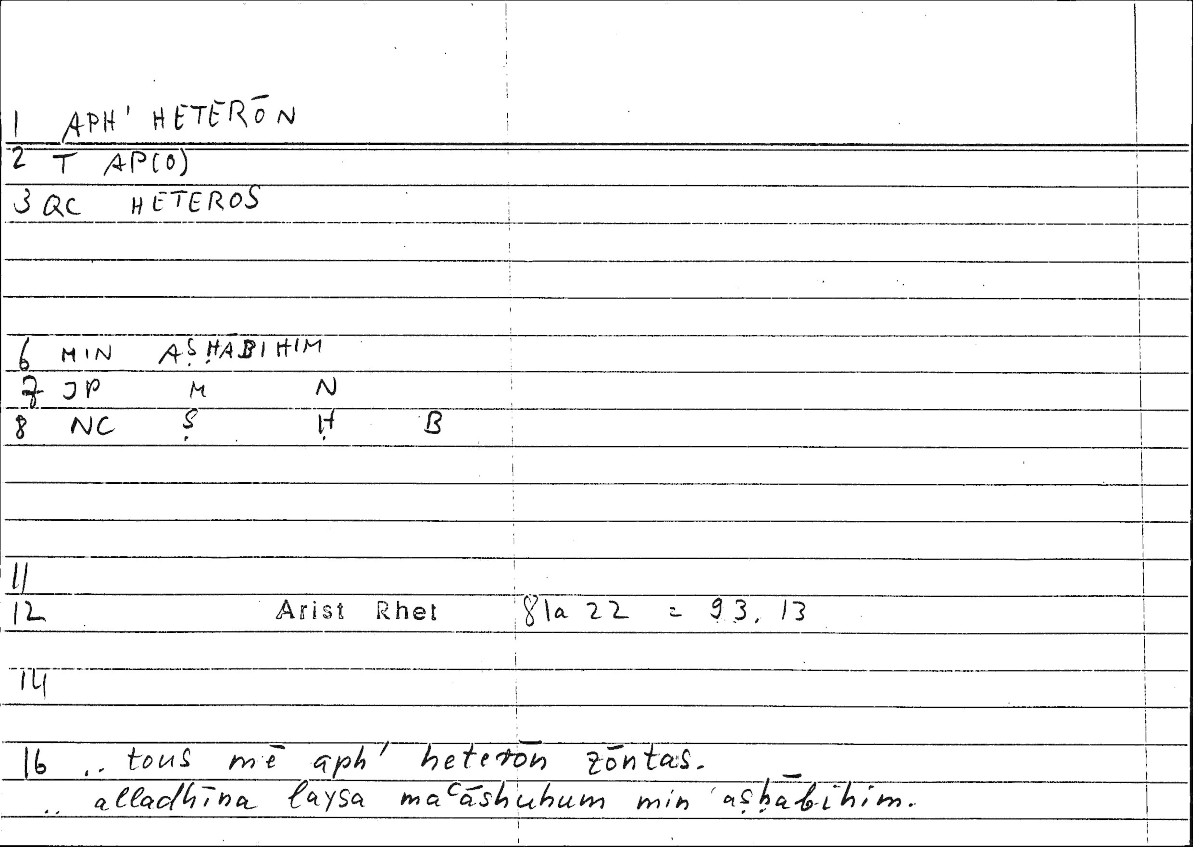 1 APH' HETERŌN
2 T AP(O)
3 QC HETEROS
6 MIN AṢḤĀBIHIM
7 JP M N
8 NC Ṣ Ḥ B
11
12 Arist Rhet 81a 22 = 93, 13
14
16 .. tous mē aph' heterōn zōntas.
.. alladhīna laysa maʿāshuhum min 'aṣḥābihim.